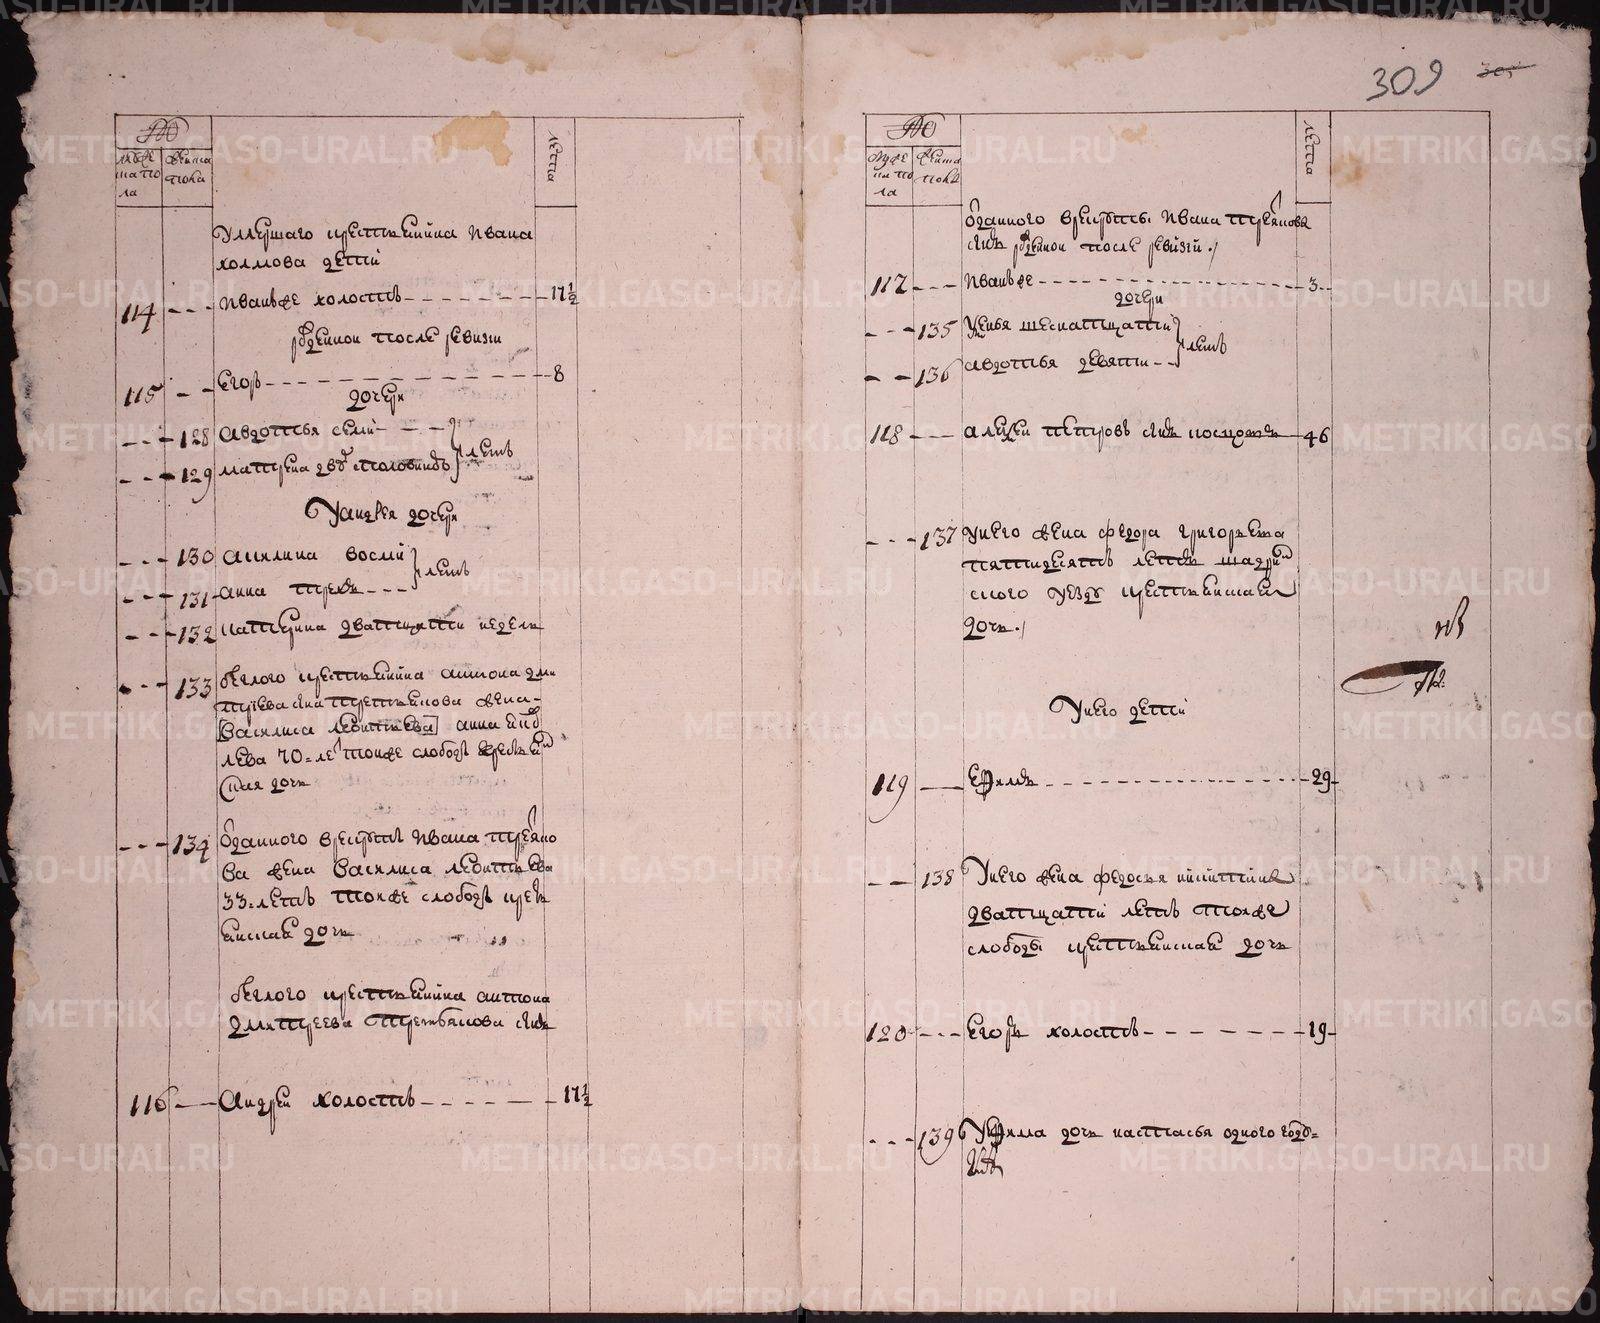 309
№
мужеска пола
женска пола
лета
Умершаго крестьянина Ивана
холмова детй
114 Иванъ же холостъ 17½
рожденной после ревизии
115 Егоръ 8
дочери
128 Авдотья семи
129 матрена двỹ сполови​ною
летъ
У андрея дочери
130 акилина восми
131 анна трехъ
летъ
132 катерина дватцати недель
133 беглого крестьянина антона дми
триева сына третьякова жена
Василиса леонтьева анна
лева 70 = ле тойже слободы крестьян
ская дочь
134 Отданного врекруты Ивана третьяко
ва жена Василиса леонтьева
33 = летъ тойже слободы кресть
янская дочь
беглого крестьянина антона
дмитреева третьякова сынъ
116 Андрей холостъ 17½
№
мужеска пола
женска пола
лета
Отданного врекруты Ивана третьякова
сынъ рожденной после ревизй
117 Иванъ же 3
дочери
135 шеснатцати
136 авдотья девяти
летъ
118 алексей петровъ сынъ 46
137 Унего жена федора григорьева
пятидесятъ летъ шадрин
ского уезду крестьянская
дочь
Унего детй
119 Ефимъ 29
138 Унего жена федосья никитина
дватцати летъ тойже
слободы крестьянская дочь
120 Егоръ холостъ 19
139 Уефима дочь настасья одного году